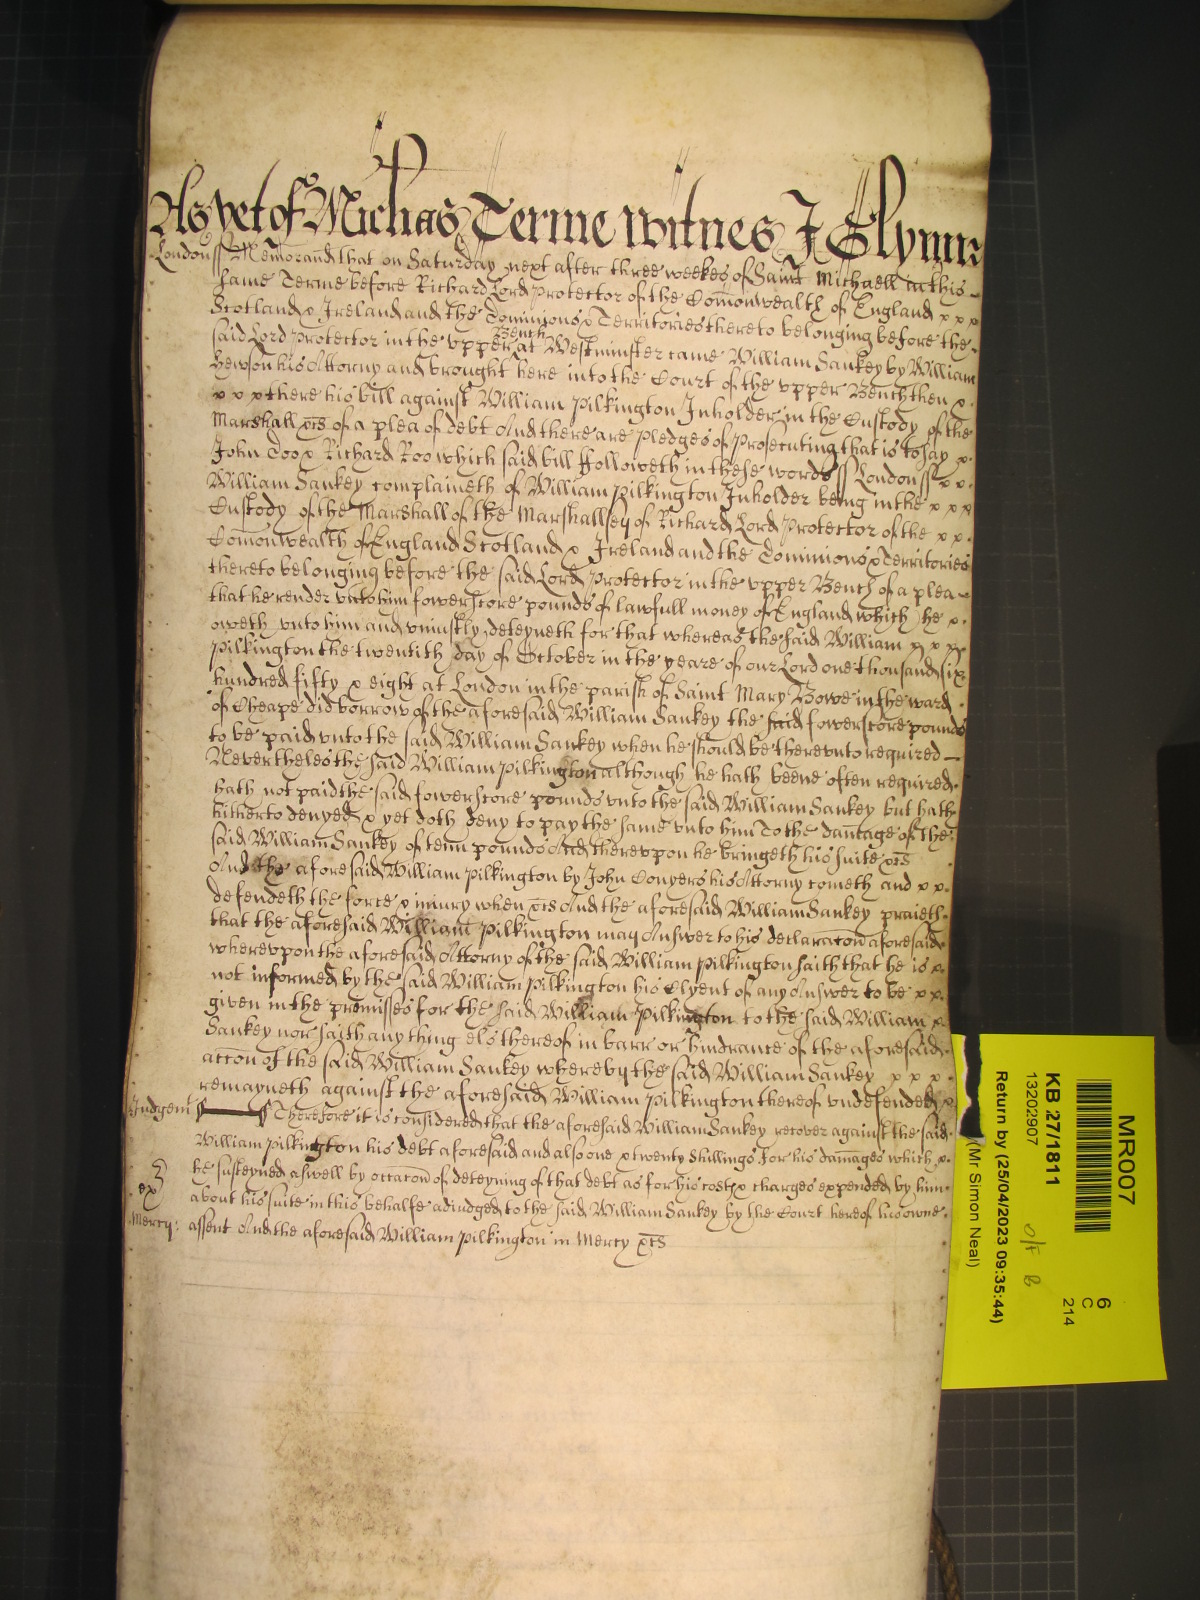 As yet of Michas Terme witnes J Glynn
London ss Memorand that on Saturday next after three weekes of Saint Michaell in this
same Terme before Richard Lord Protector of the Comonwealth of England x x x
Scotland & Ireland and the Dominions & Territories thereto belonging before the
said Lord Protector in the upper Bench at Westminster came William Sankey by William
Hewson his Attorny and brought here into the Court of the upper Bench then x
x x x there his bill against William Pilkington Inholder in the Custody of the
Marshall &cs of a plea of debt And there are pledges of prosecuting that is to say x
John Doo & Richard Roo which said bill followeth in these words ss London ss x x
William Sankey complaineth of William Pilkington Inholder being in the x x x
Custody of the Marshall of the Marshallsey of Richard Lord Protector of the x x
Comonwealth of England Scotland & Ireland and the Dominions & Territories
thereto belonging before the said Lord Protector in the upper Bench of a plea
that he render unto him fowerscore pounds of lawfull money of England which he x
oweth unto him and uniustly deteyneth for that whereas the said William x x x
Pilkington the twentith day of October in the yeare of our Lord one thousand six
hundred fifty & eight at London in the parish of Saint Mary Bowe in the ward
of Cheape did borrow of the aforesaid William Sankey the said fowerscore pounds
to be paid unto the said William Sankey when he should be thereunto required
Neverthelesthe said William Pilkington although he hath beene often required
hath not paid the said fowerscore pounds unto the said William Sankey but hath
hitherto denyed & yet doth deny to pay the same unto him To the damage of the
said William Sankey of tenn pounds And thereupon he bringeth his suite &cs
And the aforesaid William Pilkington by John Conyers his Attorny cometh and x x
defendeth the force & iniury when &cs And the aforesaid William Sankey praieth
that the aforesaid William Pilkington may Answer to his declaracon aforesaid
whereupon the aforesaid Attorny of the said William Pilkington saith that he is x
not informed by the said William Pilkington his Clyent of any Answer to be x x
given in the premisses for the said William Pilkington to the said William x
Sankey nor saith any thing els thereof in barr or hindrance of the aforesaid
accon of the said William Sankey whereby the said William Sankey x x x
remayneth against the aforesaid William Pilkington thereof undefended x
Judgemt Therefore it is considered that the aforesaid William Sankey recover against the said
William Pilkington his debt aforesaid and also one & twenty shillings for his damages which x
he susteyned aswell by occacon of deteyning of that debt as for his costs & charges expended by him
ex
about his suite in this behalfe adiudged to the said William Sankey by the Court here of his owne
Mercy: assent And the aforesaid William Pilkington in Mercy &cs
MR007
6
C
214
KB 27/1811
13202907
O/F B
Return by (25/04/2023 09:35:44)
(Mr Simon Neal)